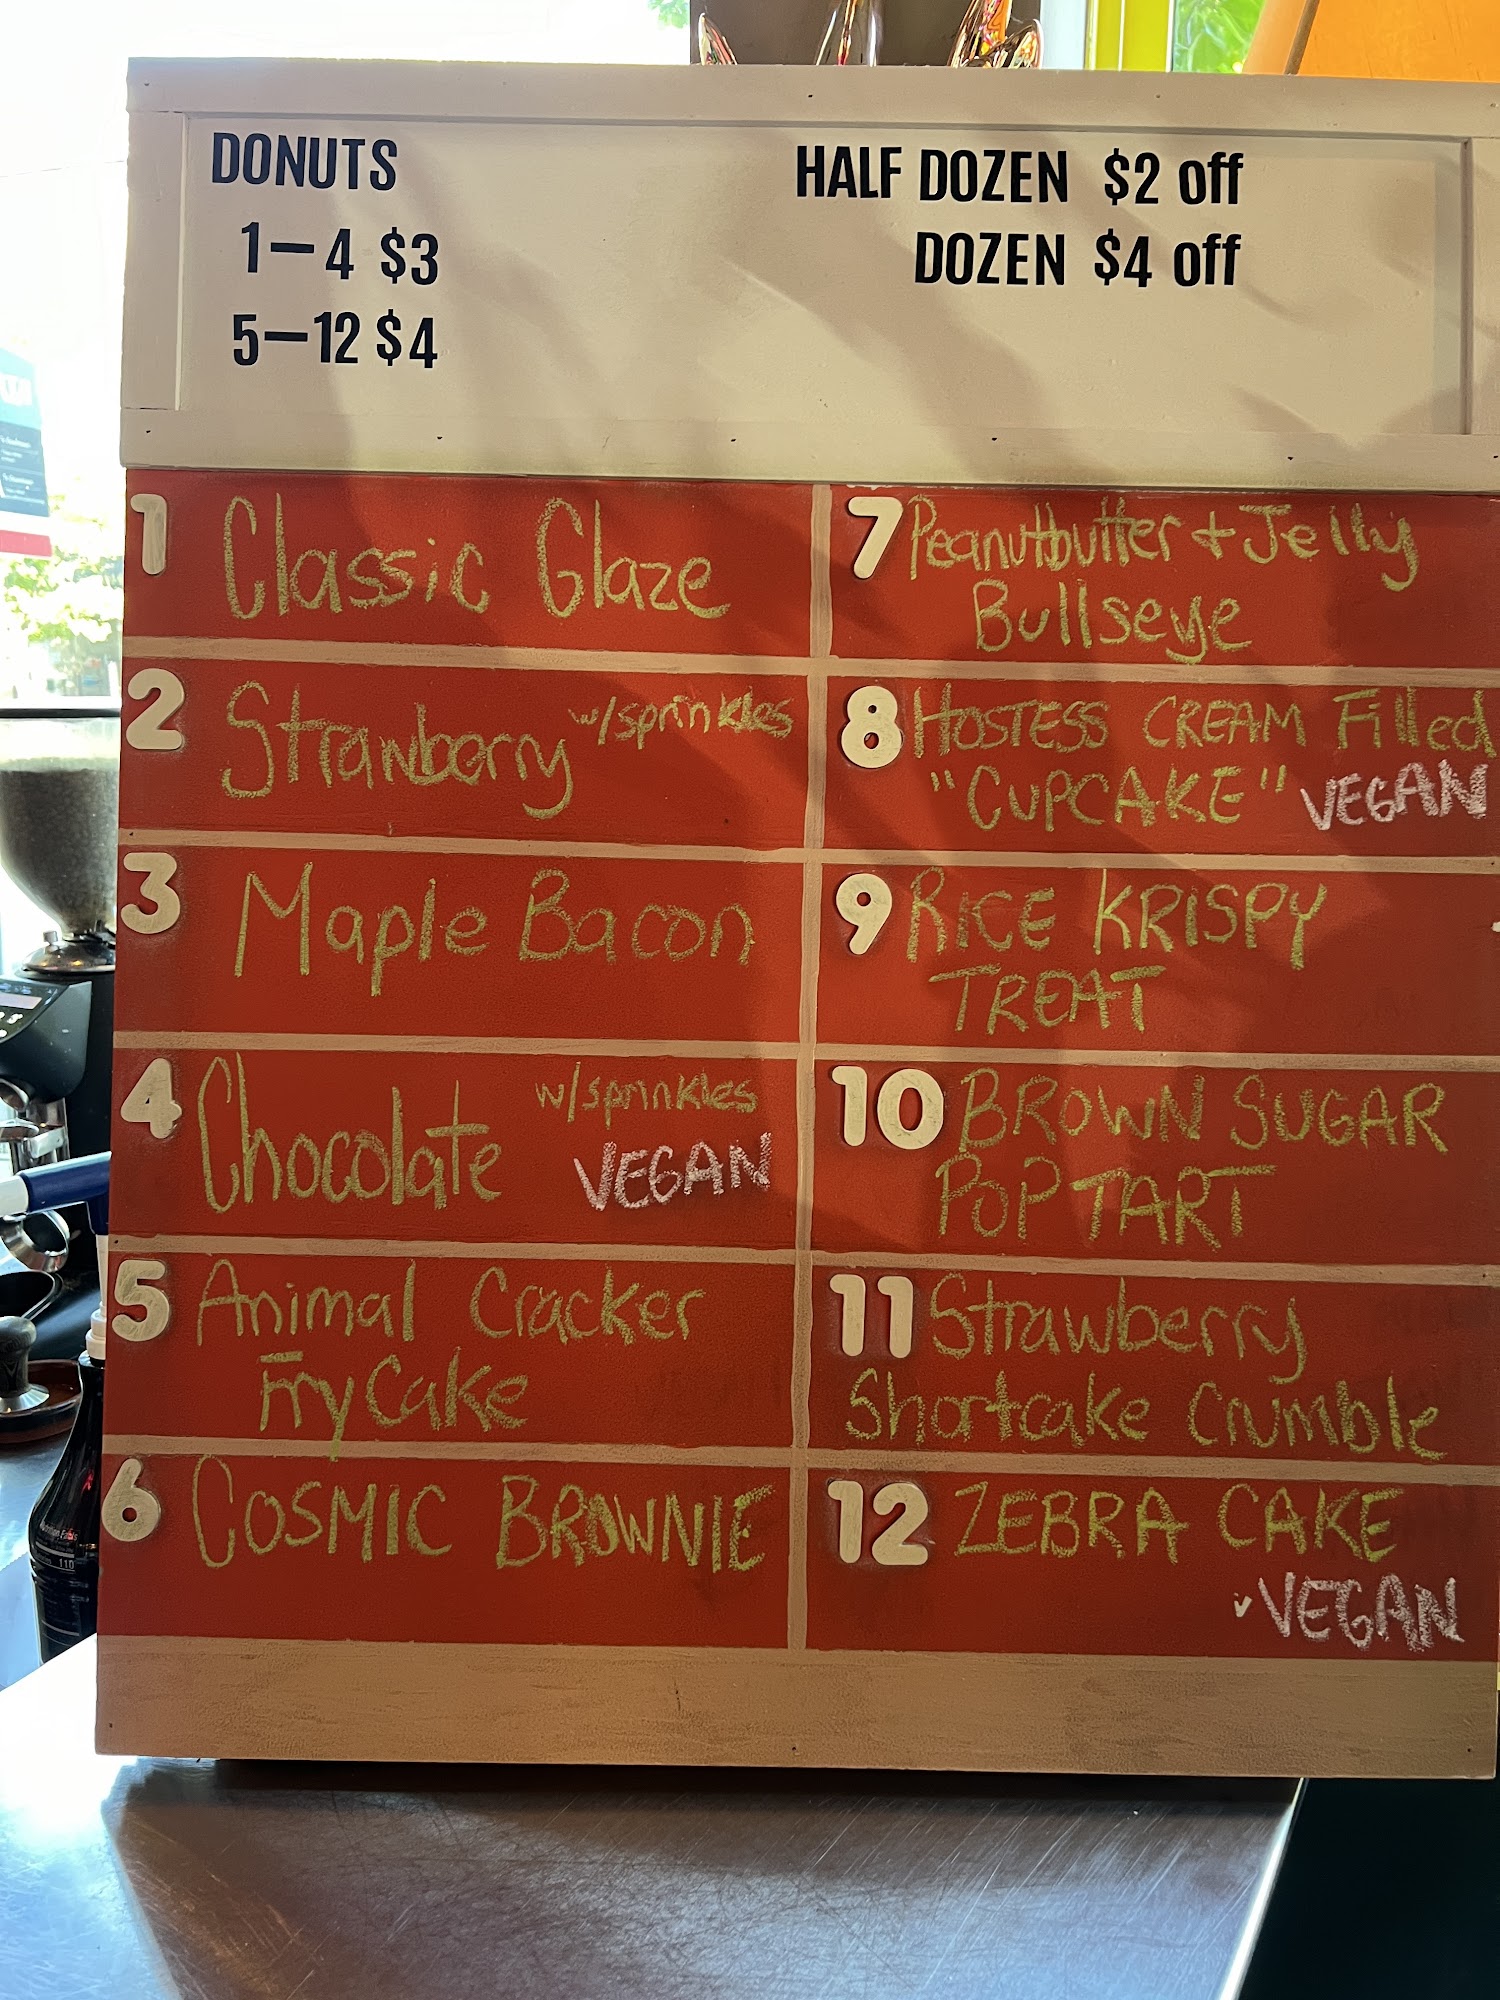 DONUTS
1—4 $3
5—12 $4
HALF DOZEN $2 off
DOZEN $4 off
1 Classic Glaze
2 Strawberry w/sprinkles
3 Maple Bacon
4 Chocolate w/sprinkles
VEGAN
5 Animal Cracker
Fry Cake
6 COSMIC BROWNIE
7 Peanutbutter + Jelly
Bullseye
8 HOSTESS CREAM Filled
"CUPCAKE" VEGAN
9 RICE KRISPY
TREAT
10 BROWN SUGAR
POP TART
11 Strawberry
Shortcake Crumble
12 ZEBRA CAKE
VEGAN
110